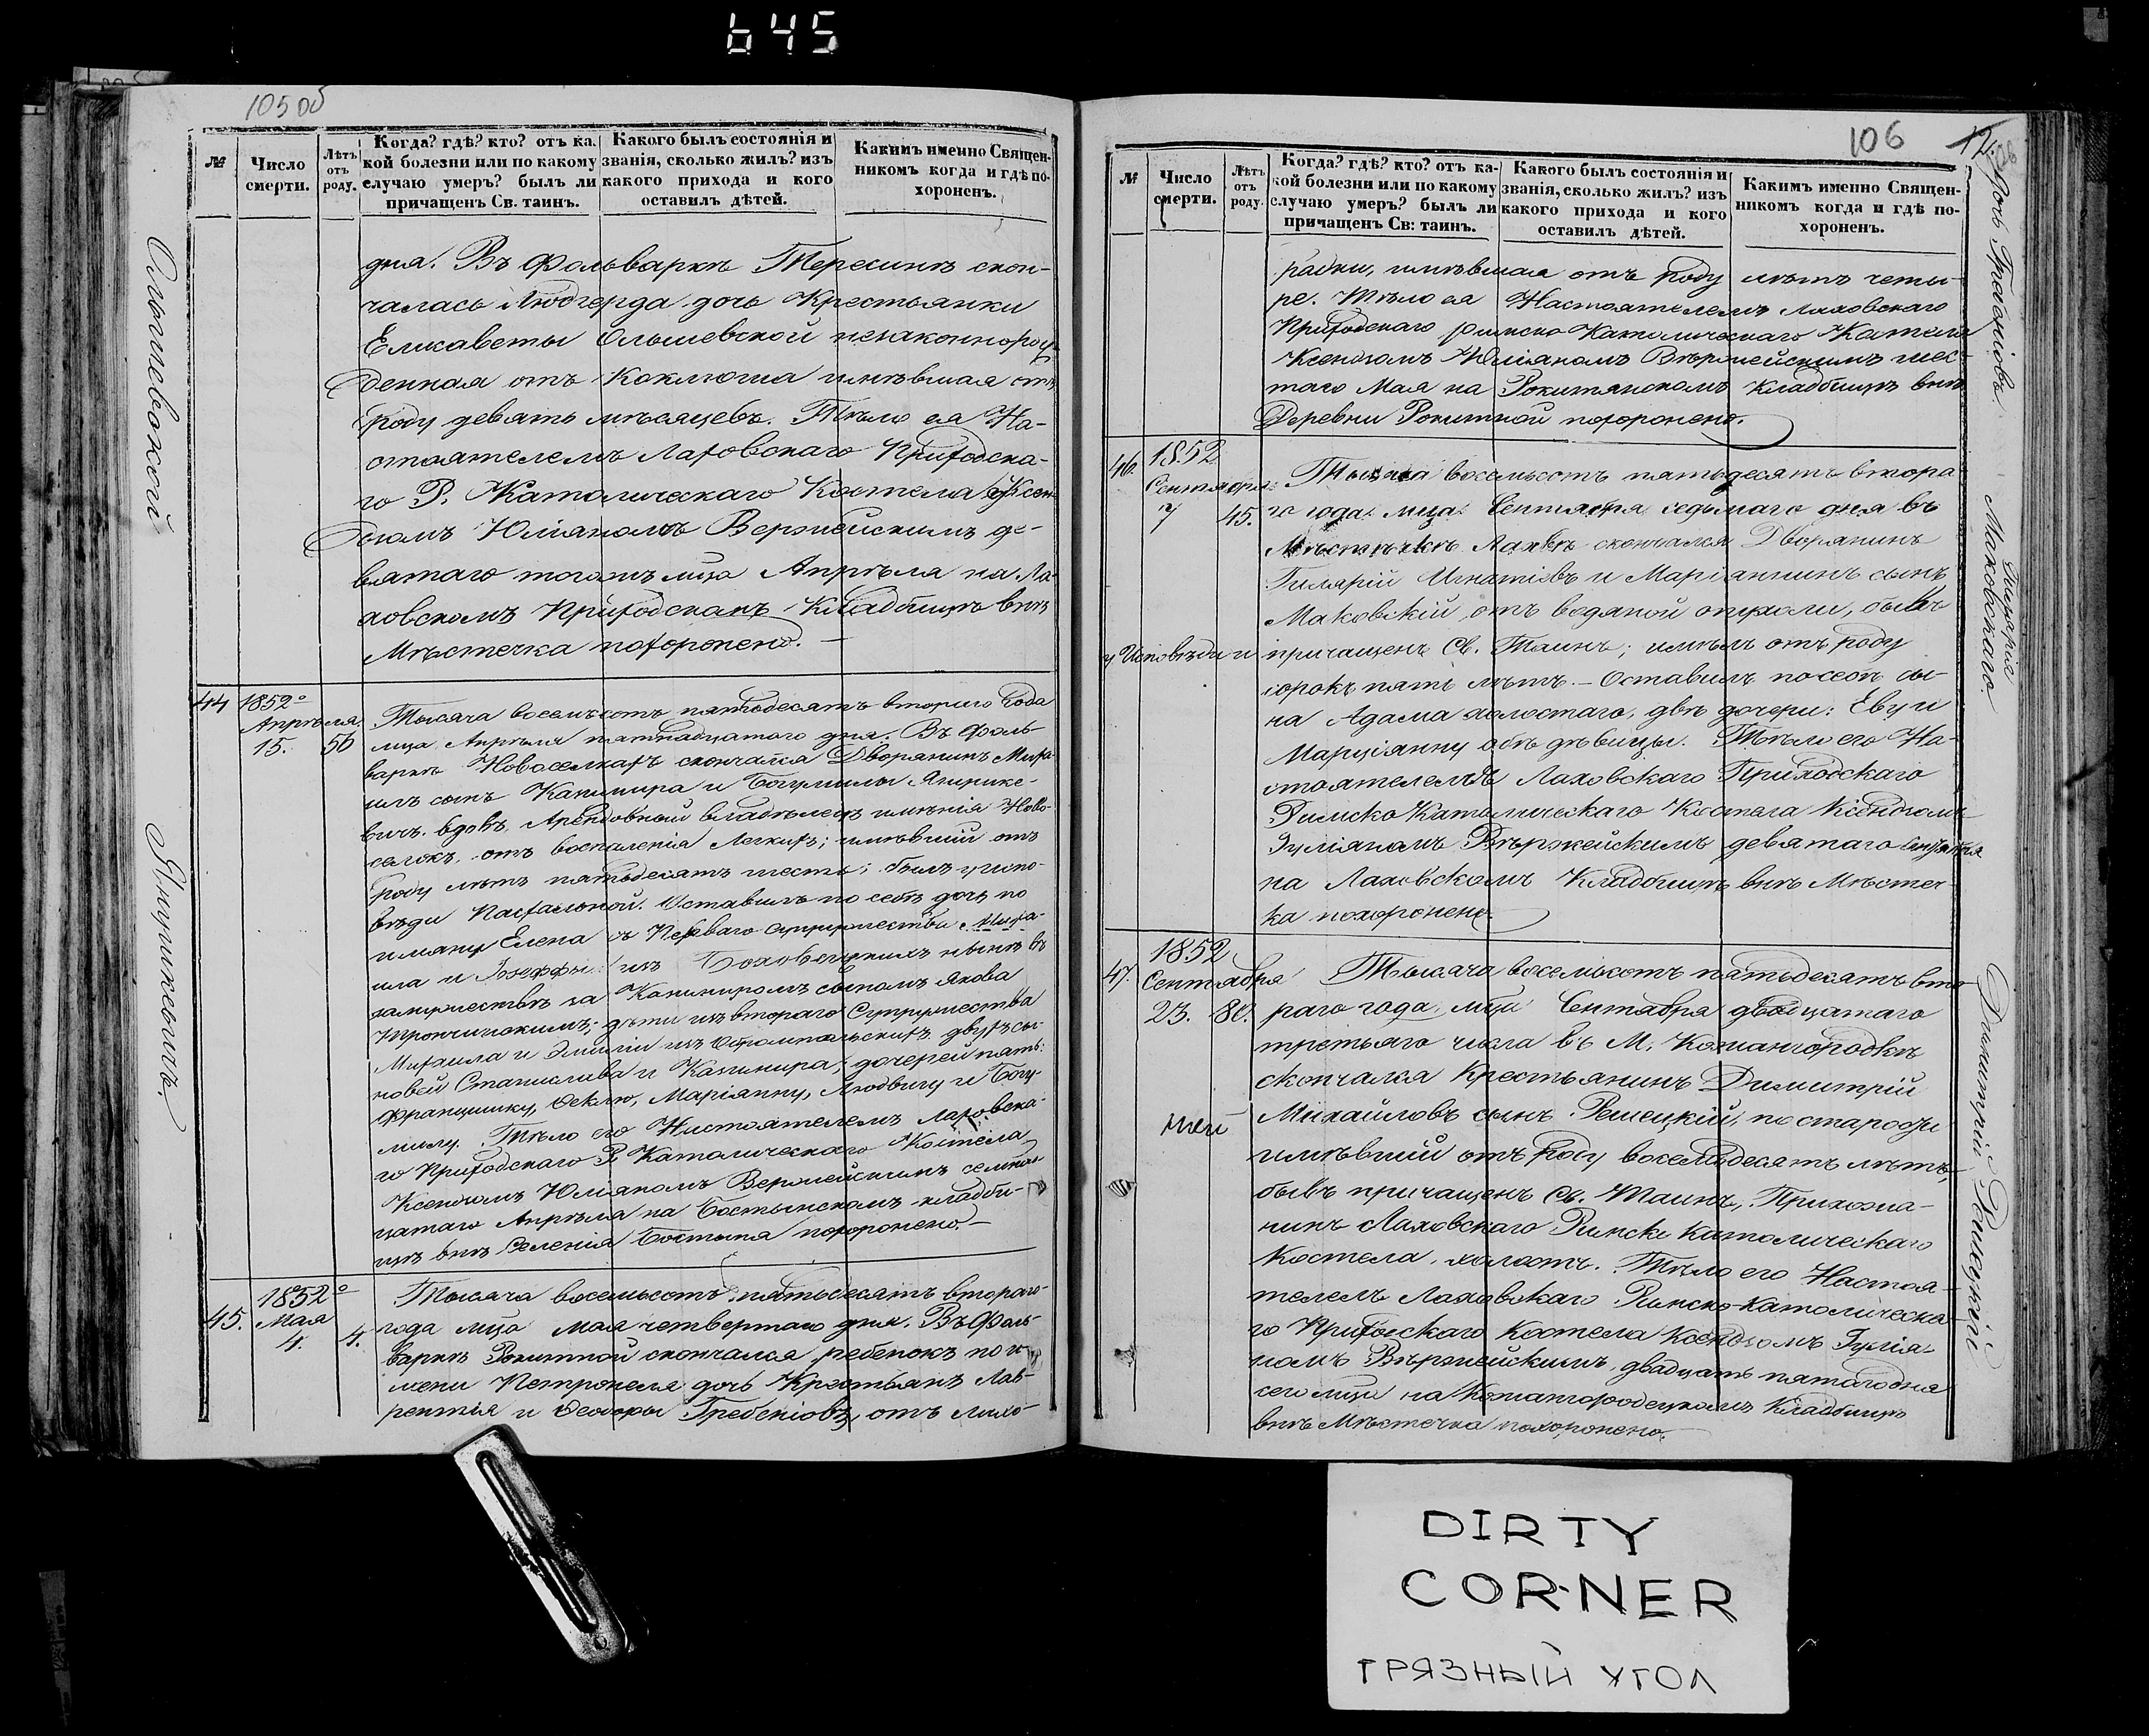 645
105 об
№
Число смерти.
Лѣтъ отъ роду.
Когда? гдѣ? кто? отъ ка-
кой болезни или по какому
случаю умеръ? былъ ли
причащенъ Св. таинъ.
Какого былъ состоянія и
званія, сколько жилъ? изъ
какого прихода и кого
оставилъ дѣтей.
Какимъ именно Священ-
никомъ когда и гдѣ по-
хороненъ.
Ольшевской
дня. Въ Фольваркѣ Тересинѣ скон-
чалась Людгерда дочь Крестьянки
Елисаветы Ольшевской незаконнорож-
денная отъ Коклюша имѣвшая отъ
роду девять мѣсяцевъ. Тѣло ея На-
стоятелемъ Лаховскаго Приходска-
го Р. Католическаго Костела Ксен-
дзомъ Юліаномъ Вержейскимъ де-
вятаго тогожъ мца Апрѣля на Ла-
ховскомъ Приходскомъ Кладбищѣ внѣ
Мѣстечка похоронено. —
44
1852о
Апрѣля
15.
56
Тысяча восемьсотъ пятьдесятъ втораго Года
мца Апрѣля пятнадцатаго дня. Въ Фоль-
варкѣ Новоселкахъ скончался Дворянинъ Миха-
илъ сынъ Казимира и Богумилы
вичъ. вдовъ, Арендовный владѣлецъ имѣнія Ново-
селокъ, отъ воспаленія Легкихъ; имѣвшій отъ
роду лѣтъ пятьдесятъ шесть; былъ у испо-
вѣди Пасхальной. Оставилъ по себѣ дочь по
имяну Елена съ Перваго супружества Миха-
ила и Іозеффы изъ нынѣ въ
замужествѣ за Казимиромъ сыномъ Якова
дѣти изъ втораго Супружества
Михаила и Эмиліи изъ двухъ сы-
новей Станислава и Казимира; дочерей пять:
Францишку, Ѳеклю, Маріянну, Людвигу и Богу-
милу. Тѣло его Настоятелемъ Лаховска-
го Приходскаго Р. Католическаго Костела
Ксендзомъ Юліаномъ Вержейскимъ семнад-
цатаго Апрѣля на Бостынскомъ кладби-
щѣ внѣ Селенія Бостыня похоронено. —
45.
1852о
Мая
4.
4.
Тысяча восемьсотъ пятьдесятъ втораго
года мца Мая четвертаго дня. Въ Фоль-
варкѣ Рокитной скончался ребенокъ по и-
мени Петронеля дочь Крестьянъ Лав-
рентія и Ѳеодоры Гребеніовъ, отъ лихо-
106
№
Число смерти.
Лѣтъ отъ роду.
Когда? гдѣ? кто? отъ ка-
кой болезни или по какому
случаю умеръ? былъ ли
причащенъ Св: таинъ.
Какого былъ состоянія и
званія, сколько жилъ? изъ
какого прихода и кого
оставилъ дѣтей.
Какимъ именно Священ-
никомъ когда и гдѣ по-
хороненъ.
радки, имѣвшая отъ роду лѣтъ четы-
ре. Тѣло ея Настоятелемъ Лаховскаго
Приходскаго римско Католическаго Костела
Ксендзомъ Юліаномъ Вѣржейскимъ шес-
таго Мая на Рокитянскомъ Кладбищѣ внѣ
Деревни Рокитной похоронено.
46.
1852
Сентября
7
45.
Тысяча восемьсотъ пятьдесятъ втора-
го года мца Сентября седьмаго дня въ
Мѣстечкѣ Лахвѣ скончался Дворянинъ
Гилярій Игнатіовъ и Маріаннинъ сынъ
Маковскій, отъ водяной опухоли, бывъ
у Исповѣди и причащенъ Св. Таинъ; имѣлъ отъ роду
сорокъ пять лѣтъ. — Оставилъ по себѣ сы-
на Адама холостаго, двѣ дочери: Еву и
Марціянну обѣ дѣвицы. Тѣло его На-
стоятелемъ Лаховскаго Приходскаго
Римско Католическаго Костела Ксендзомъ
Іуліяномъ Вѣржейскимъ девятаго Сентября
на Лаховскомъ Кладбищѣ внѣ Мѣстеч-
ка похоронено.
Гилярія
Маковского.
47.
1852
Сентября
23.
80.
Тысяча восемьсотъ пятьдесятъ вто-
раго года, мца Сентября двадцатаго
третьяго числа въ М. Кожангородкѣ
скончался Крестьянинъ Димитрій
Михайловъ сынъ Решецкій, по старости
имѣвшій отъ роду восемьдесятъ лѣтъ,
бывъ причащенъ Св. Таинъ, Прихожа-
нинъ Лаховскаго Римско Католическаго
Костела, холостъ. Тѣло его Настоя-
телемъ Лаховскаго Римско-Католическа-
го Приходскаго Костела Ксендзомъ Іулія-
номъ Вѣржейскимъ, двадцать пятаго дня
сего мца на Кожангородецкомъ Кладбищѣ
внѣ Мѣстечка похоронено.
Димитрій Решецкій
DIRTY
CORNER
ГРЯЗНЫЙ УГОЛ